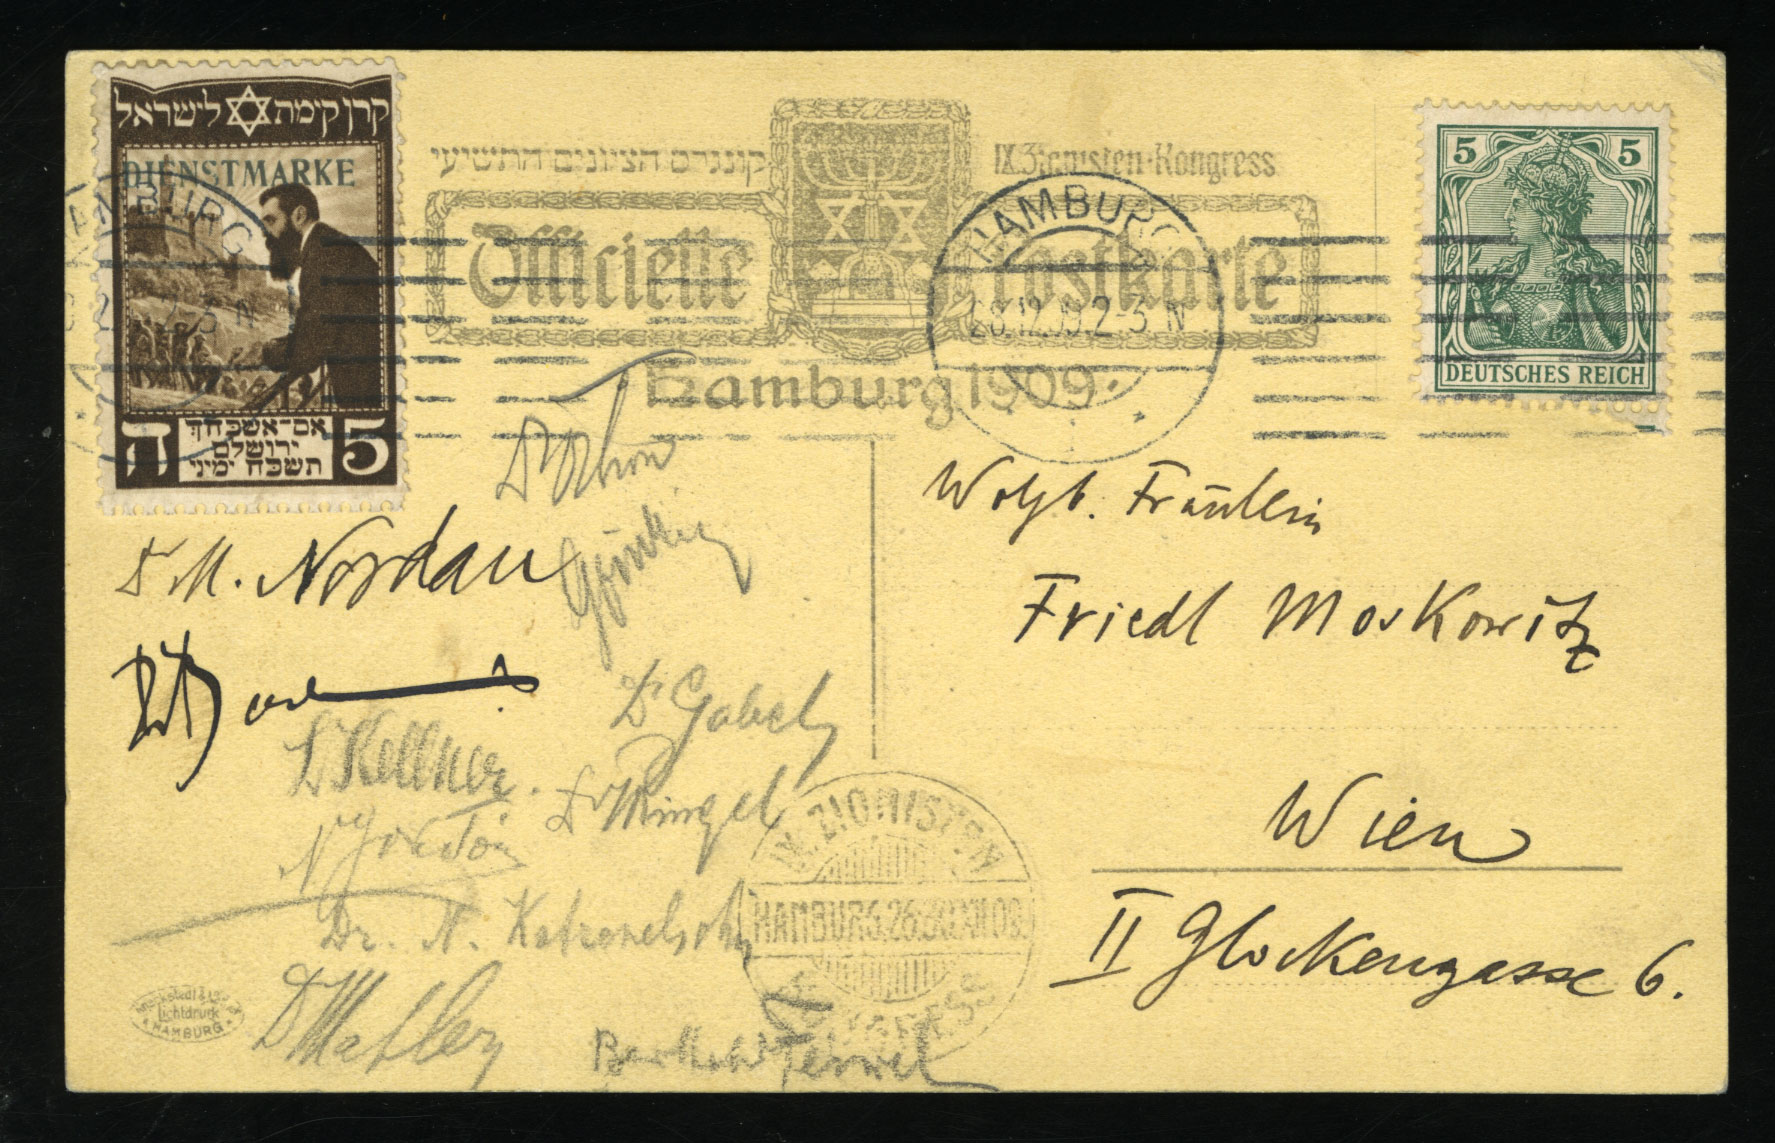 קרן קימת לישראל
DIENSTMARKE
ה
אם־אשכחך
ירושלם
תשכח ימיני
5
קונגרס הציונים התשיעי
IX. Zionisten-Kongress
Officielle Postkarte
Hamburg 1909.
HAMBURG
HAMBURG
12.09.2-3 N
5 5
DEUTSCHES REICH
Dr M. Nordau
Dr Kellner.
Dr Gabel
Dr Ringel
Dr. N. Katzenelsohn
Berthold Feiwel
Wolgb. Fräulein
Friedl Moskowitz
Wien
II Glockengasse 6.
IX. ZIONISTEN
HAMBURG.26.30.XII.09.
KONGRESS
Lichtdruck
HAMBURG